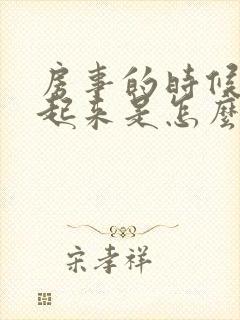 房事的時候
起來是怎麼
宋孝祥